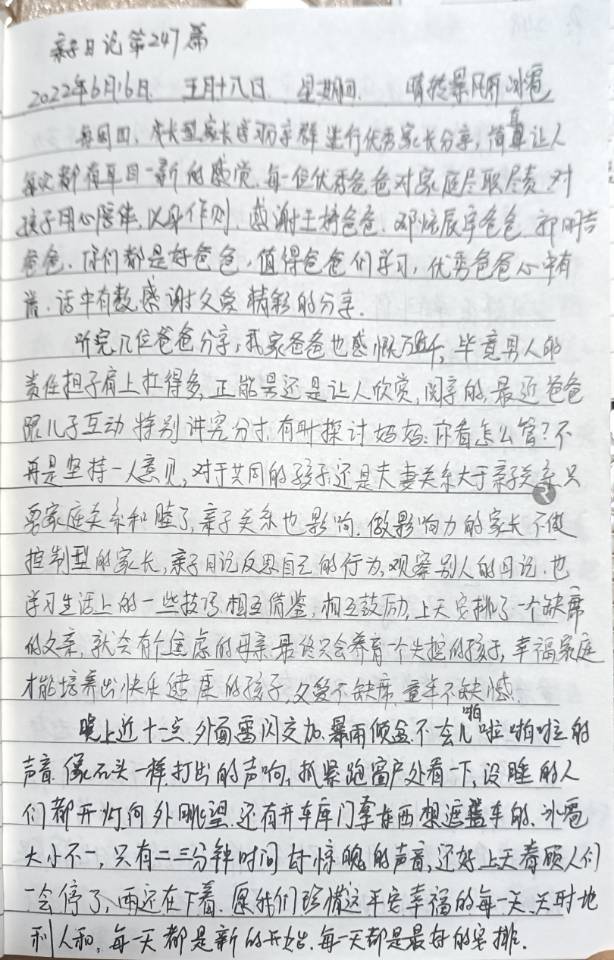 亲子日记第247篇
2022年6月16日 五月十八日 星期四 晴转暴风雨冰雹
每周四,成长型家长学习分享群进行优秀家长分享,简直让人
每次都有耳目一新的感觉,每一位优秀爸爸对家庭尽职尽责,对
孩子用心陪伴,以身作则,感谢王 爸爸,邓 辰宇爸爸,郭明吉
爸爸,你们都是好爸爸,值得爸爸们学习,优秀爸爸心中有
,话中有数感谢父爱精彩的分享.
听完几位爸爸分享,我家爸爸也感慨万千,毕竟男人的
责任担子肩上扛得多,正能量还是让人欣赏,阅享的,最近爸爸
跟儿子互动特别讲究分寸,有时探讨妈妈:你看怎么管?不
再是坚持一人意见,对于共同的孩子还是夫妻关系大于亲子关系,只
要家庭关系和睦了,亲子关系也影响.做影响力的家长不做
控制型的家长,亲子日记反思自己的行为,观察别人的日记.也
学习生活上的一些技巧,相互借鉴,相互鼓励,上天安排了一个缺席
的父亲,就会有个焦虑的母亲最终只会养育一个失控的孩子,幸福家庭
才能培养出快乐健康的孩子,父爱不缺席,童年不缺憾.
晚上近十一点,外面雷闪交加,暴雨倾盆,不一会儿啪啦啪啦的
声音,像石头一样打出的声响,抓紧跑窗户处看一下,没睡的人
们都开灯向外眺望,还有开车库门拿东西想遮盖车的,冰雹
大小不一,只有二三分钟时间 惊魄的声音,还好上天眷顾人们
一会停了,雨还在下着.愿我们珍惜这平安幸福的每一天,天时地
利人和,每一天都是新的开始,每一天都是最好的安排.